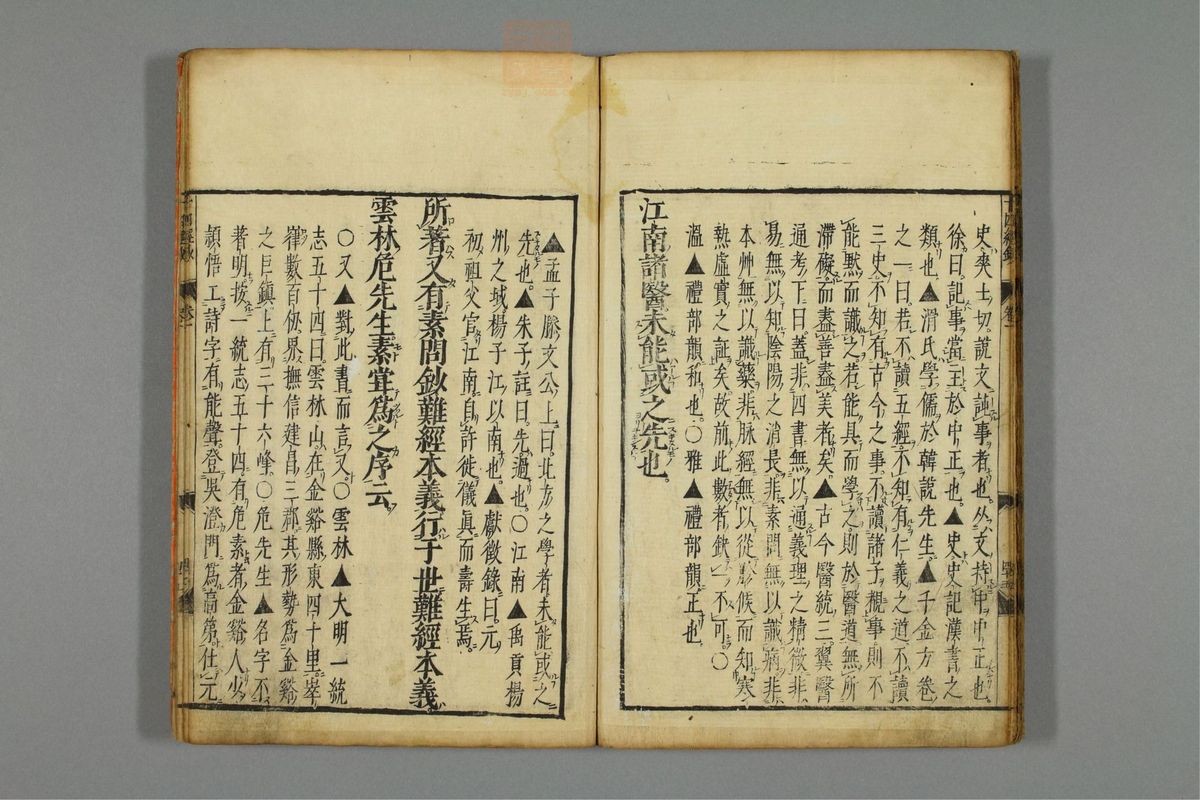 史爽士切。說文記事者也。从又持中。中正也。
徐曰。記事當主於中正也。▲史史記漢書之
類也。▲滑氏學儒於韓說先生。▲千金方卷
之一曰。若不讀五經。不知有仁義之道。不讀
三史。不知有古今之事。不讀諸子。覩事則不
能默而識之。若能具而學之。則於醫道無所
滯礙。而盡善盡美者矣。▲古今醫統三。翼醫
通考下曰。蓋非四書無以通義理之精微。非
易無以知陰陽之消長。非素問無以識病。非
本艸無以識藥。非脉經無以從脈候而知寒
熱虛實之証矣。故前此數者缺一不可。○
溫▲禮部韻和也。○雅▲禮部韻正也
江南諸醫未能或之先也。
▲孟子滕文公上曰。北方之學者未能或之
先也。▲朱子註曰。先過也。○江南▲禹貢揚
州之域。楊子江以南也。▲獻徵錄曰。元
初。祖父官江南。自許徙儀眞而壽生焉。
所著又有素問鈔難經本義行于世難經本義
雲林危先生素甞爲之序云
○又▲對此書而言又。○雲林▲大明一統
志五十四曰。雲林山。在金谿縣東四十里。峯
嵂數百仭。界撫信建昌三郡。其形勢爲金谿
之巨鎮。上有三十六峰。○危先生▲名字不
著明。按一統志五十四。有危素者。金谿人。少
頴悟。工詩字。有能聲。登吳澄門爲高第。仕元